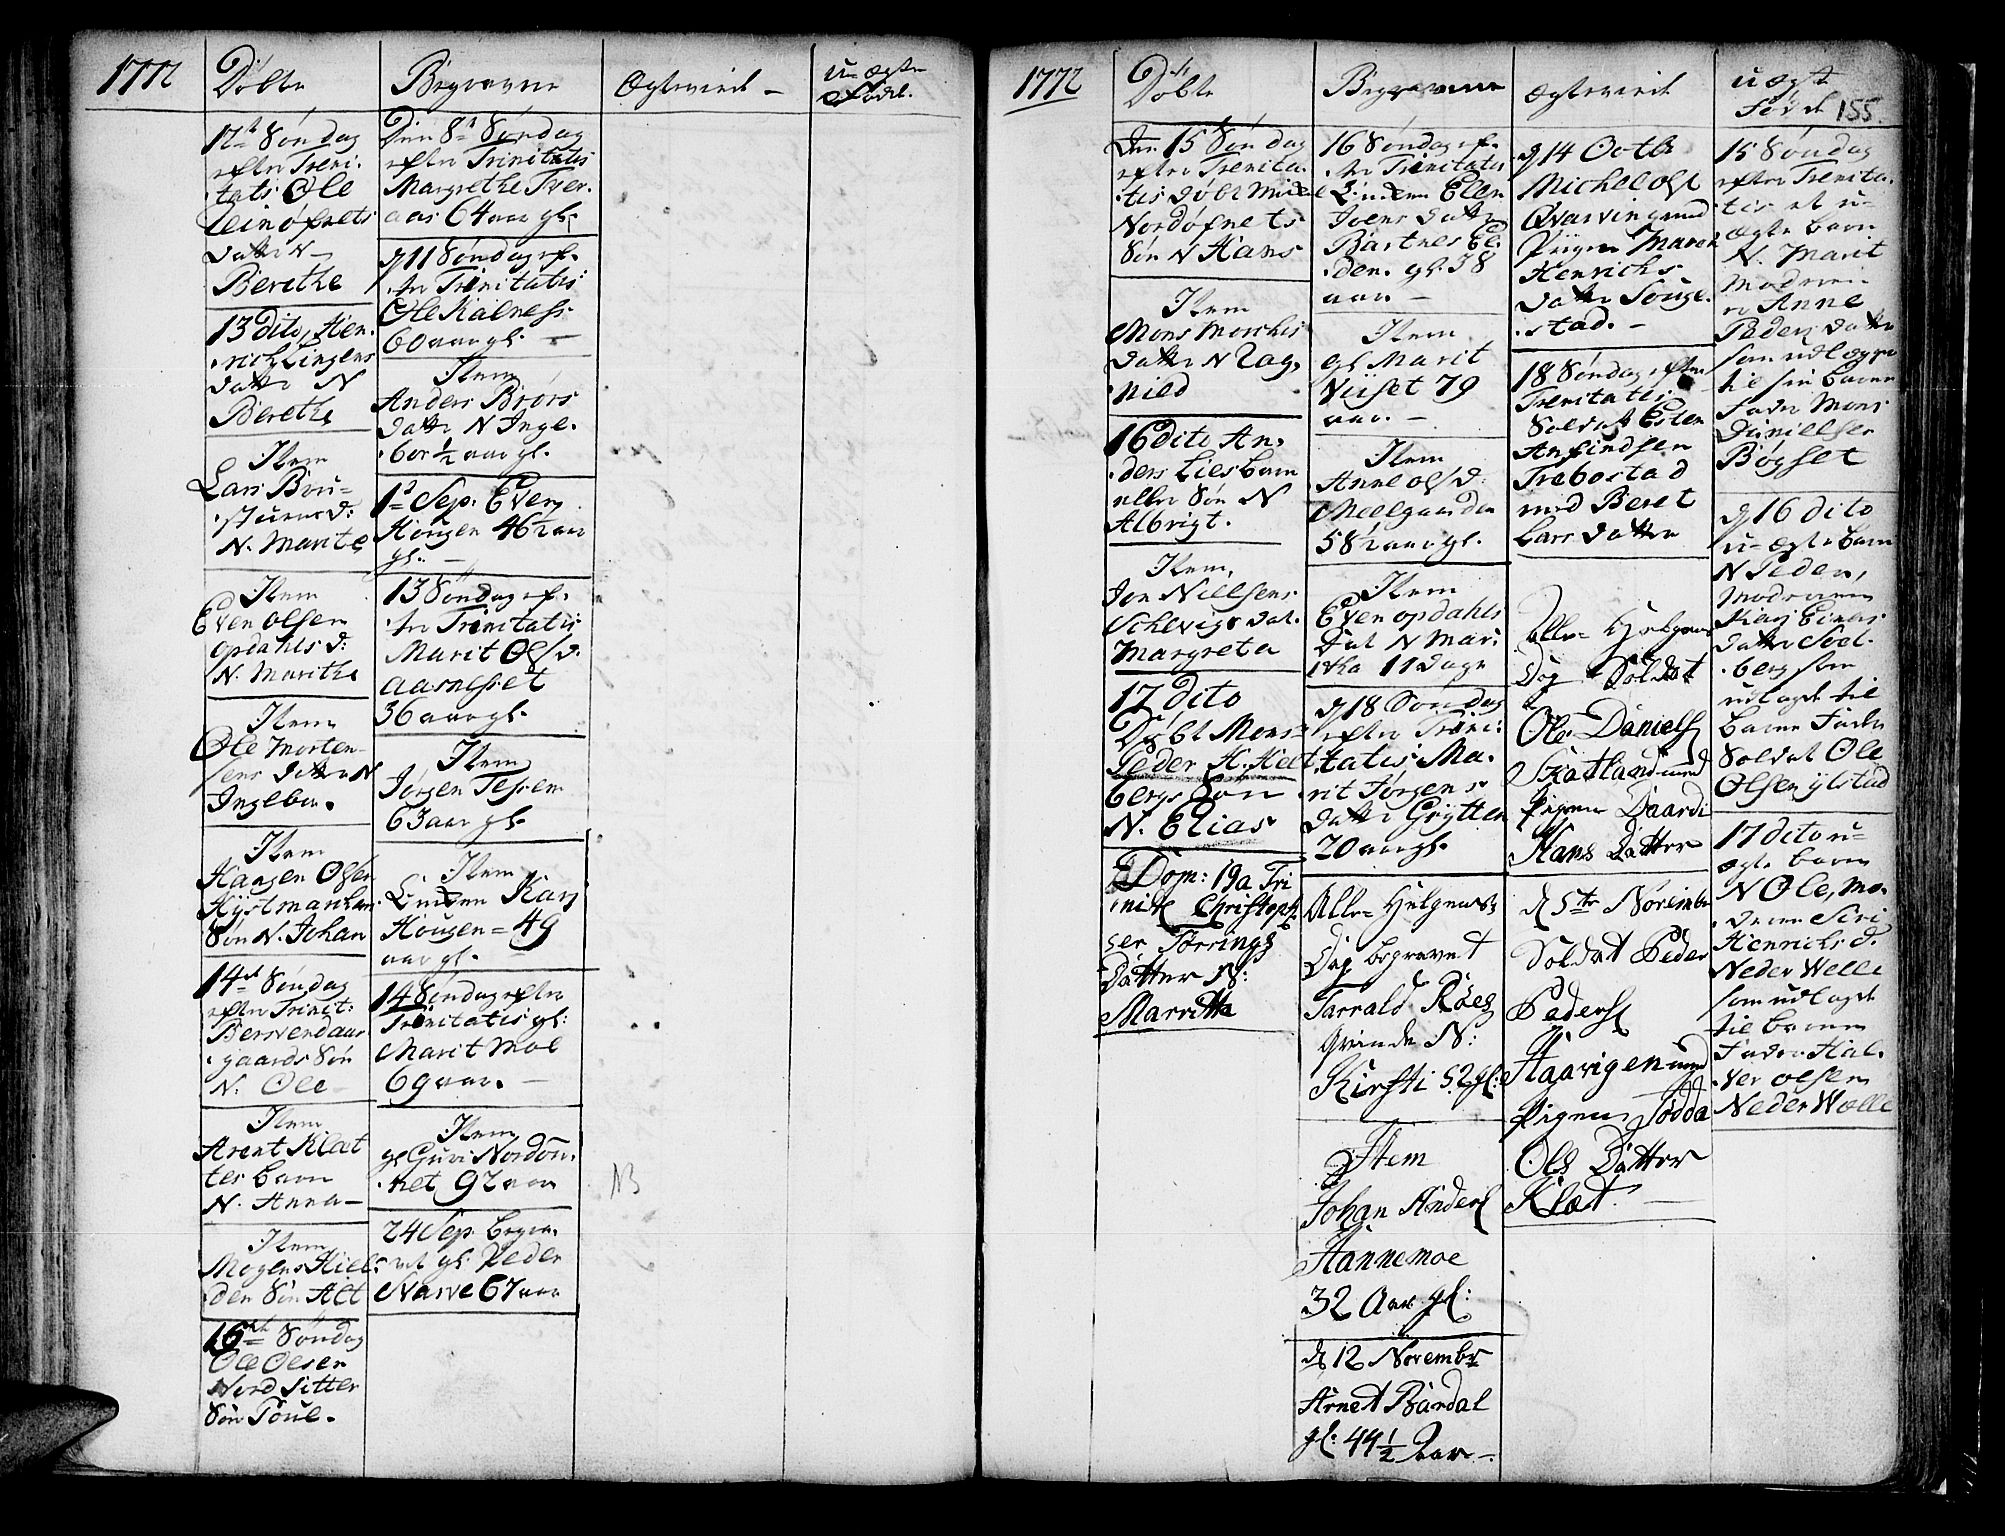 1772
Döbte
Begravne
Ægteviede
u-ægte
Föde.
12te Söndag
efter Treni-
tatis Ole
Leinöfnets
datter N
Berethe
13 dito, Hen-
rich Lingens
datter N
Berethe
Item
Lars Bru-
stuens d:
N. Marite
Item
Even Olsen
opdahls d:
N. Marithe
Item
Ole Morten-
sens datter N
Ingebor.
Item
Haagen Olsen
Hystmanhau
Sön N. Johan
14de Söndag
efter Trinit:
Bervendaar
gaards Sön
N: Ole
Item
Arent Klæt
tes barn
N. Anna
Item
Mogens Hiel-
den Sön Alt
16de Söndag
Ole Olsen
Nord Sitter
Sön Poul.
Den 8de Söndag
efter Trinitatis
Margrethe Tver-
aas 64 aar gl.
d 11 Söndag ef-
ter Trinitatis
Ole Kalness
60 aar gl.
Item
Anders Brörs
datter N Inge-
bor ½ aar gl.
1t Sep: Even
Hougen 46½ aar
gl.
13 Söndag ef-
ter Trinitatis
Marit Ols d.
aarnesset
36 aar gl.
Item
Jörgen Tessem
63 aar gl.
Item
Enken Kari
Hougen = 49
aar gl.
14 Söndag efter
Trinitatis gl:
Marit Moe
69 aar.
Item
gl. Guri Nordön-
net 92 aar
24 Sep. begra-
vet gl. Peder
Narve 67 aar
NB
1772
Döbte
Begravne
Ægteviede
u ægte
Föde
155.
Den 15 Söndag
efter Trenita-
tis döbt
Nordöfnets
Sön N Hans
Item
Mons Morchis
datter N Rag-
nild
16 dito An-
ders Lies barn
eller Sön N
Albrigt.
Item
Jon Nielsens
Schevigs dat.
Margreta
17 dito
Döbt Mons:
Peder H. Helt
bergs Sön
N. Elias
Dom: 19 a Tri
nit Christoph
ser Tørrings
Datter N:
Marritta
16 Söndag ef-
ter Trinitatis
Enken Elen
Joens datter
Bartnes El-
den. gl. 38
aar.
Item
gl. Marit
Veiset 79
aar.
Item
Anne Ols d:
Melgaarden
58½ aar gl.
Item
Even opdahls
dat N Mari-
tha 11 dage
d 18 Söndag
efter Treni-
tatis Ma-
rit Jörgens
datter Grytten
20 aar gl.
Alle-Helgens
Dag begravet
Tarrald Röes
Qvinde N:
Kirsti 52 gl:
Item
Johan Anders
Hannemoe
32 Aar gl:
d 12 Novembr
Arnet Bardal
gl: 44½ Aar
d 14 Octb
Michel Ols
Qvarving med
Piigen Maren
Henrichs
datter Souge-
stad.
18 Söndag efter
Trenitatis
Soldat Esten
Anfindsen
Trebostad
med Beret
Lars datter
Alle-Helgens
Dag Soldat
Ole Daniels
Skatland med
Pigen
Hans Datter
d 5te Novembr
Soldat Peder
Peders
Haavigen med
Pigen Tödda
Ols Datter
Klæt.
15 Söndag
efter Trenita-
tis et u-
ægte barn
N. Marit
Moderen
er Anne
Peders datter
som udlægger
til sin barne
Fader Mons
Danielsen
Bögset
d 16 dito
u-ægte barn
N Peder,
Moderen
Kari Einars
datter Soel-
berg som
udlagde til
barne Fader
Soldat Ole
Olsen ylstad
17 dito u-
ægte barn
N Ole, Mo-
deren Siri
Henrichs d.
Neder Welle
som udlagde
til barne
Fader Hal-
ver olsen
Neder Wælle